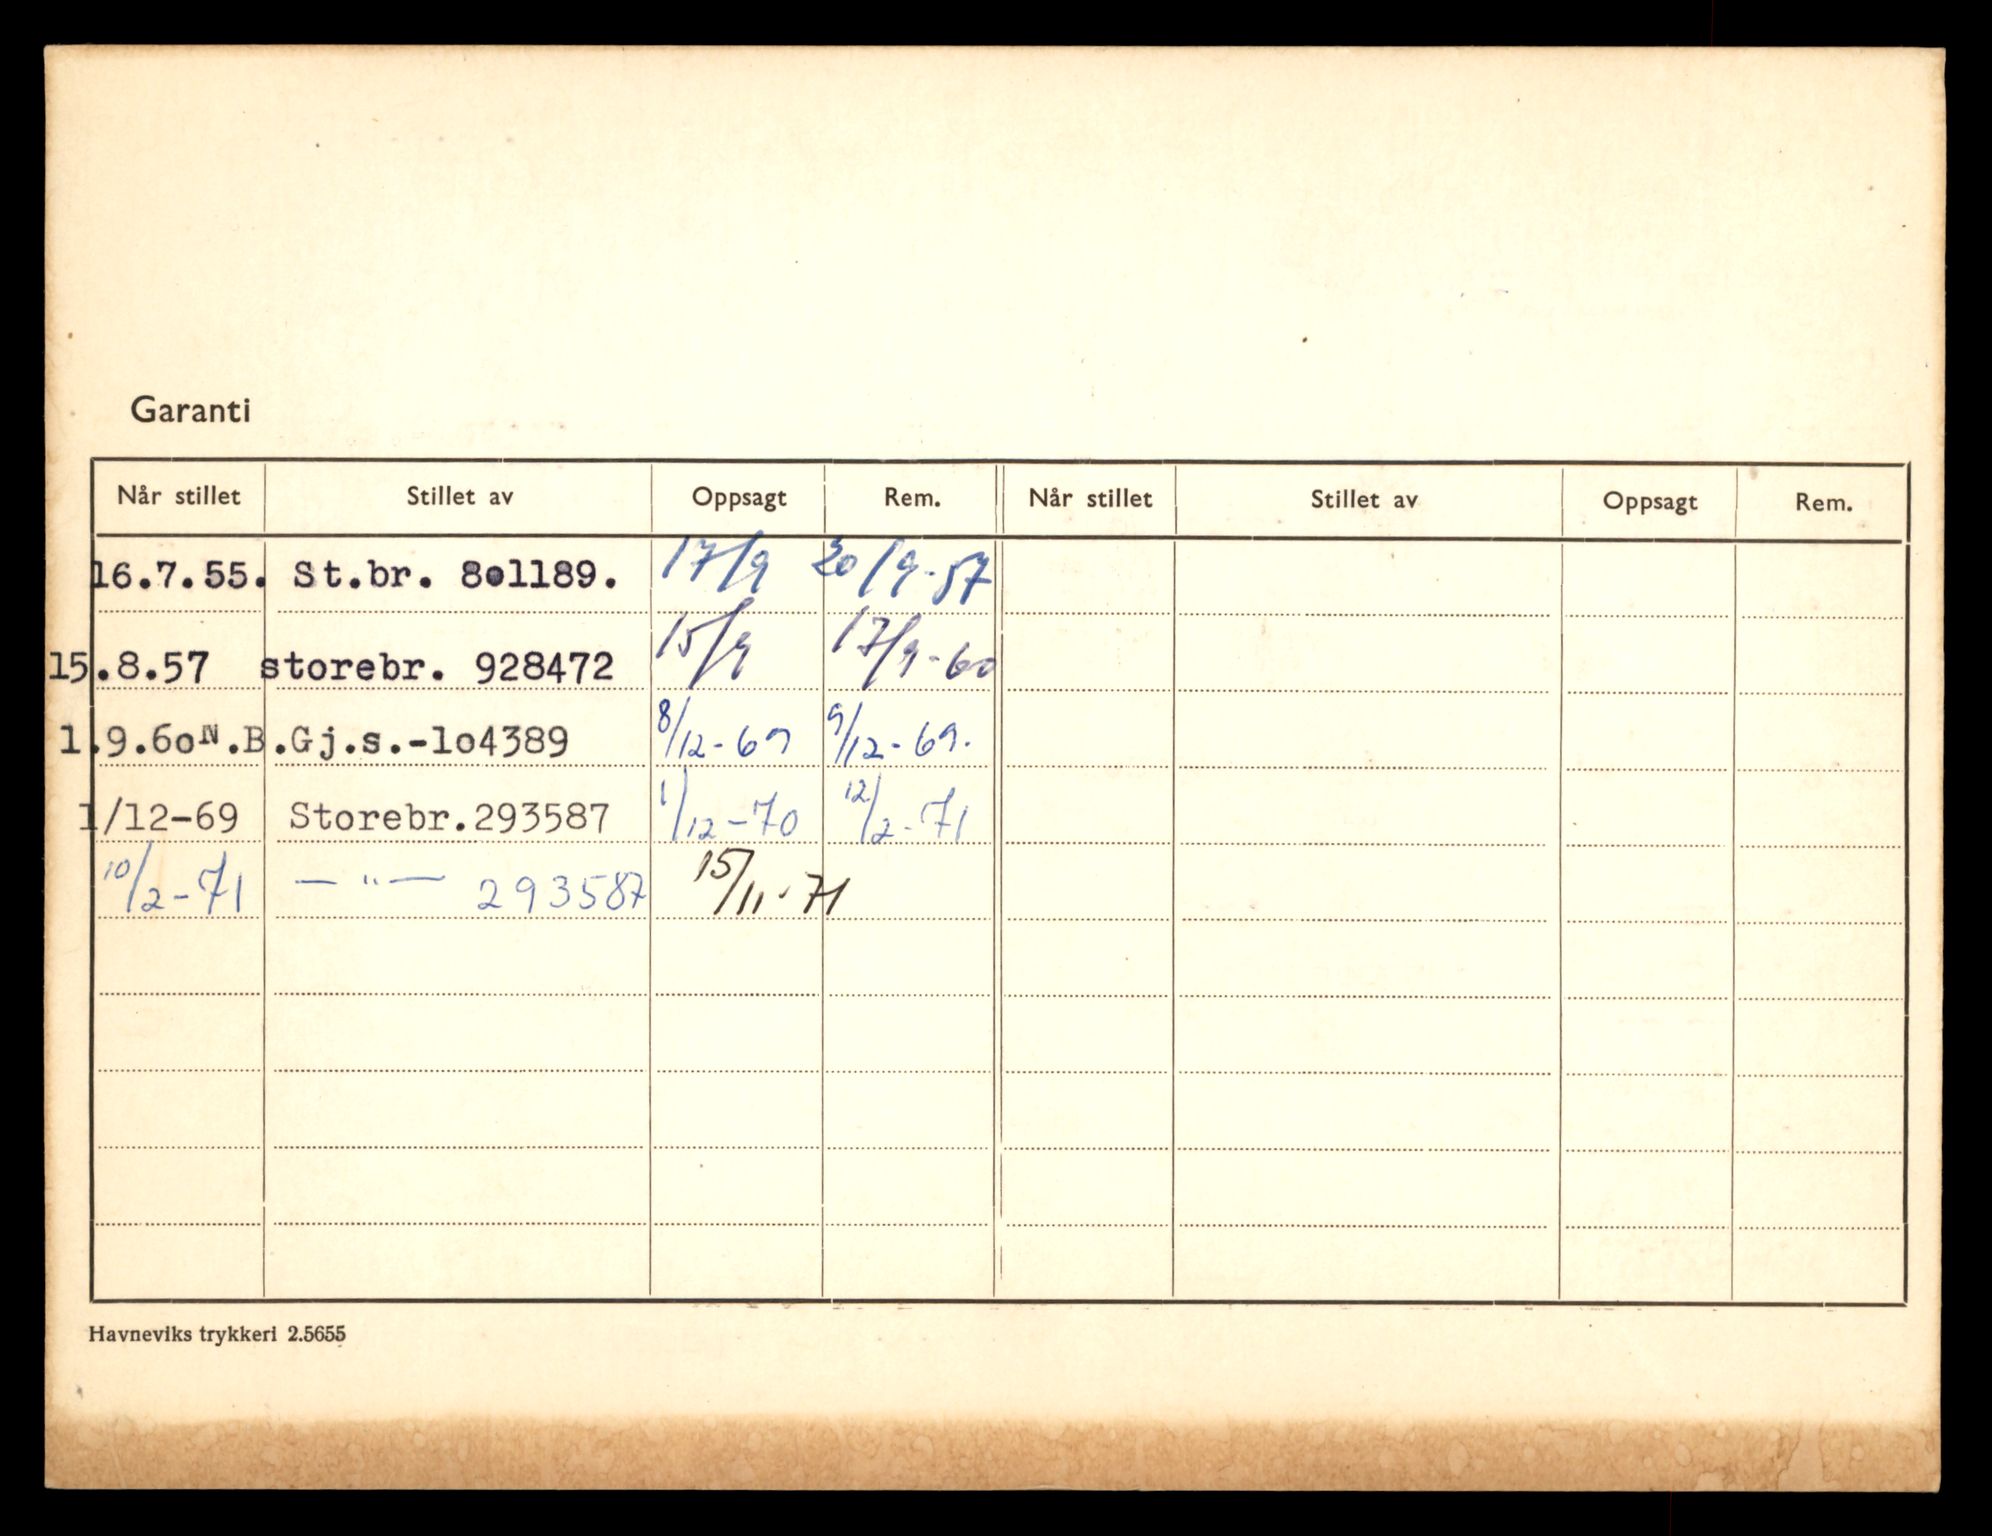 Garanti
Når stillet Stillet av Oppsagt Rem. Når stillet Stillet av Oppsagt Rem.
16.7.55. St.br. 8o1189. 17/9 20/9-57
15.8.57 storebr. 928472 15/9 17/9-60
1.9.6o N.B.Gj.s.-lo4389 8/12-69 9/12-69.
1/12-69 Storebr.293587 1/12-70 12/2-71
10/2-71 — " — 293587 15/11-71
Havneviks trykkeri 2.5655